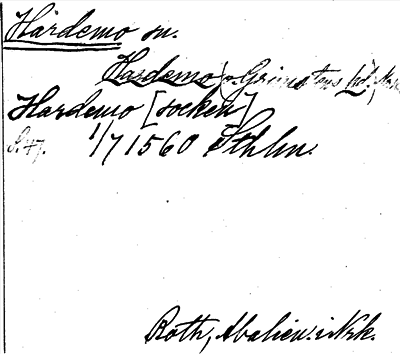 Hardemo sn.
Hardemo, Grimstens hd,
Hardemo [socken]
1/7 1560 Sthlm.
Roth, Abalien. i Nrk.